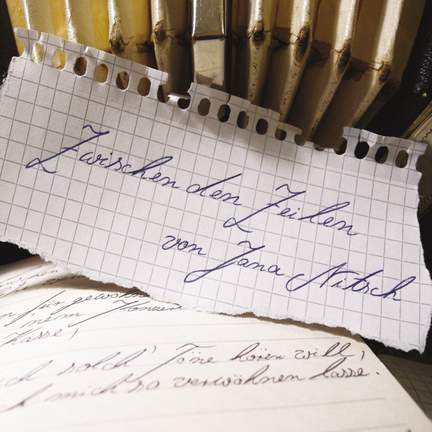 Zwischen den Zeilen
von Jana Nitsch
'nem
lasse!
solch' Töne hören will,
mich so verwöhnen lasse.